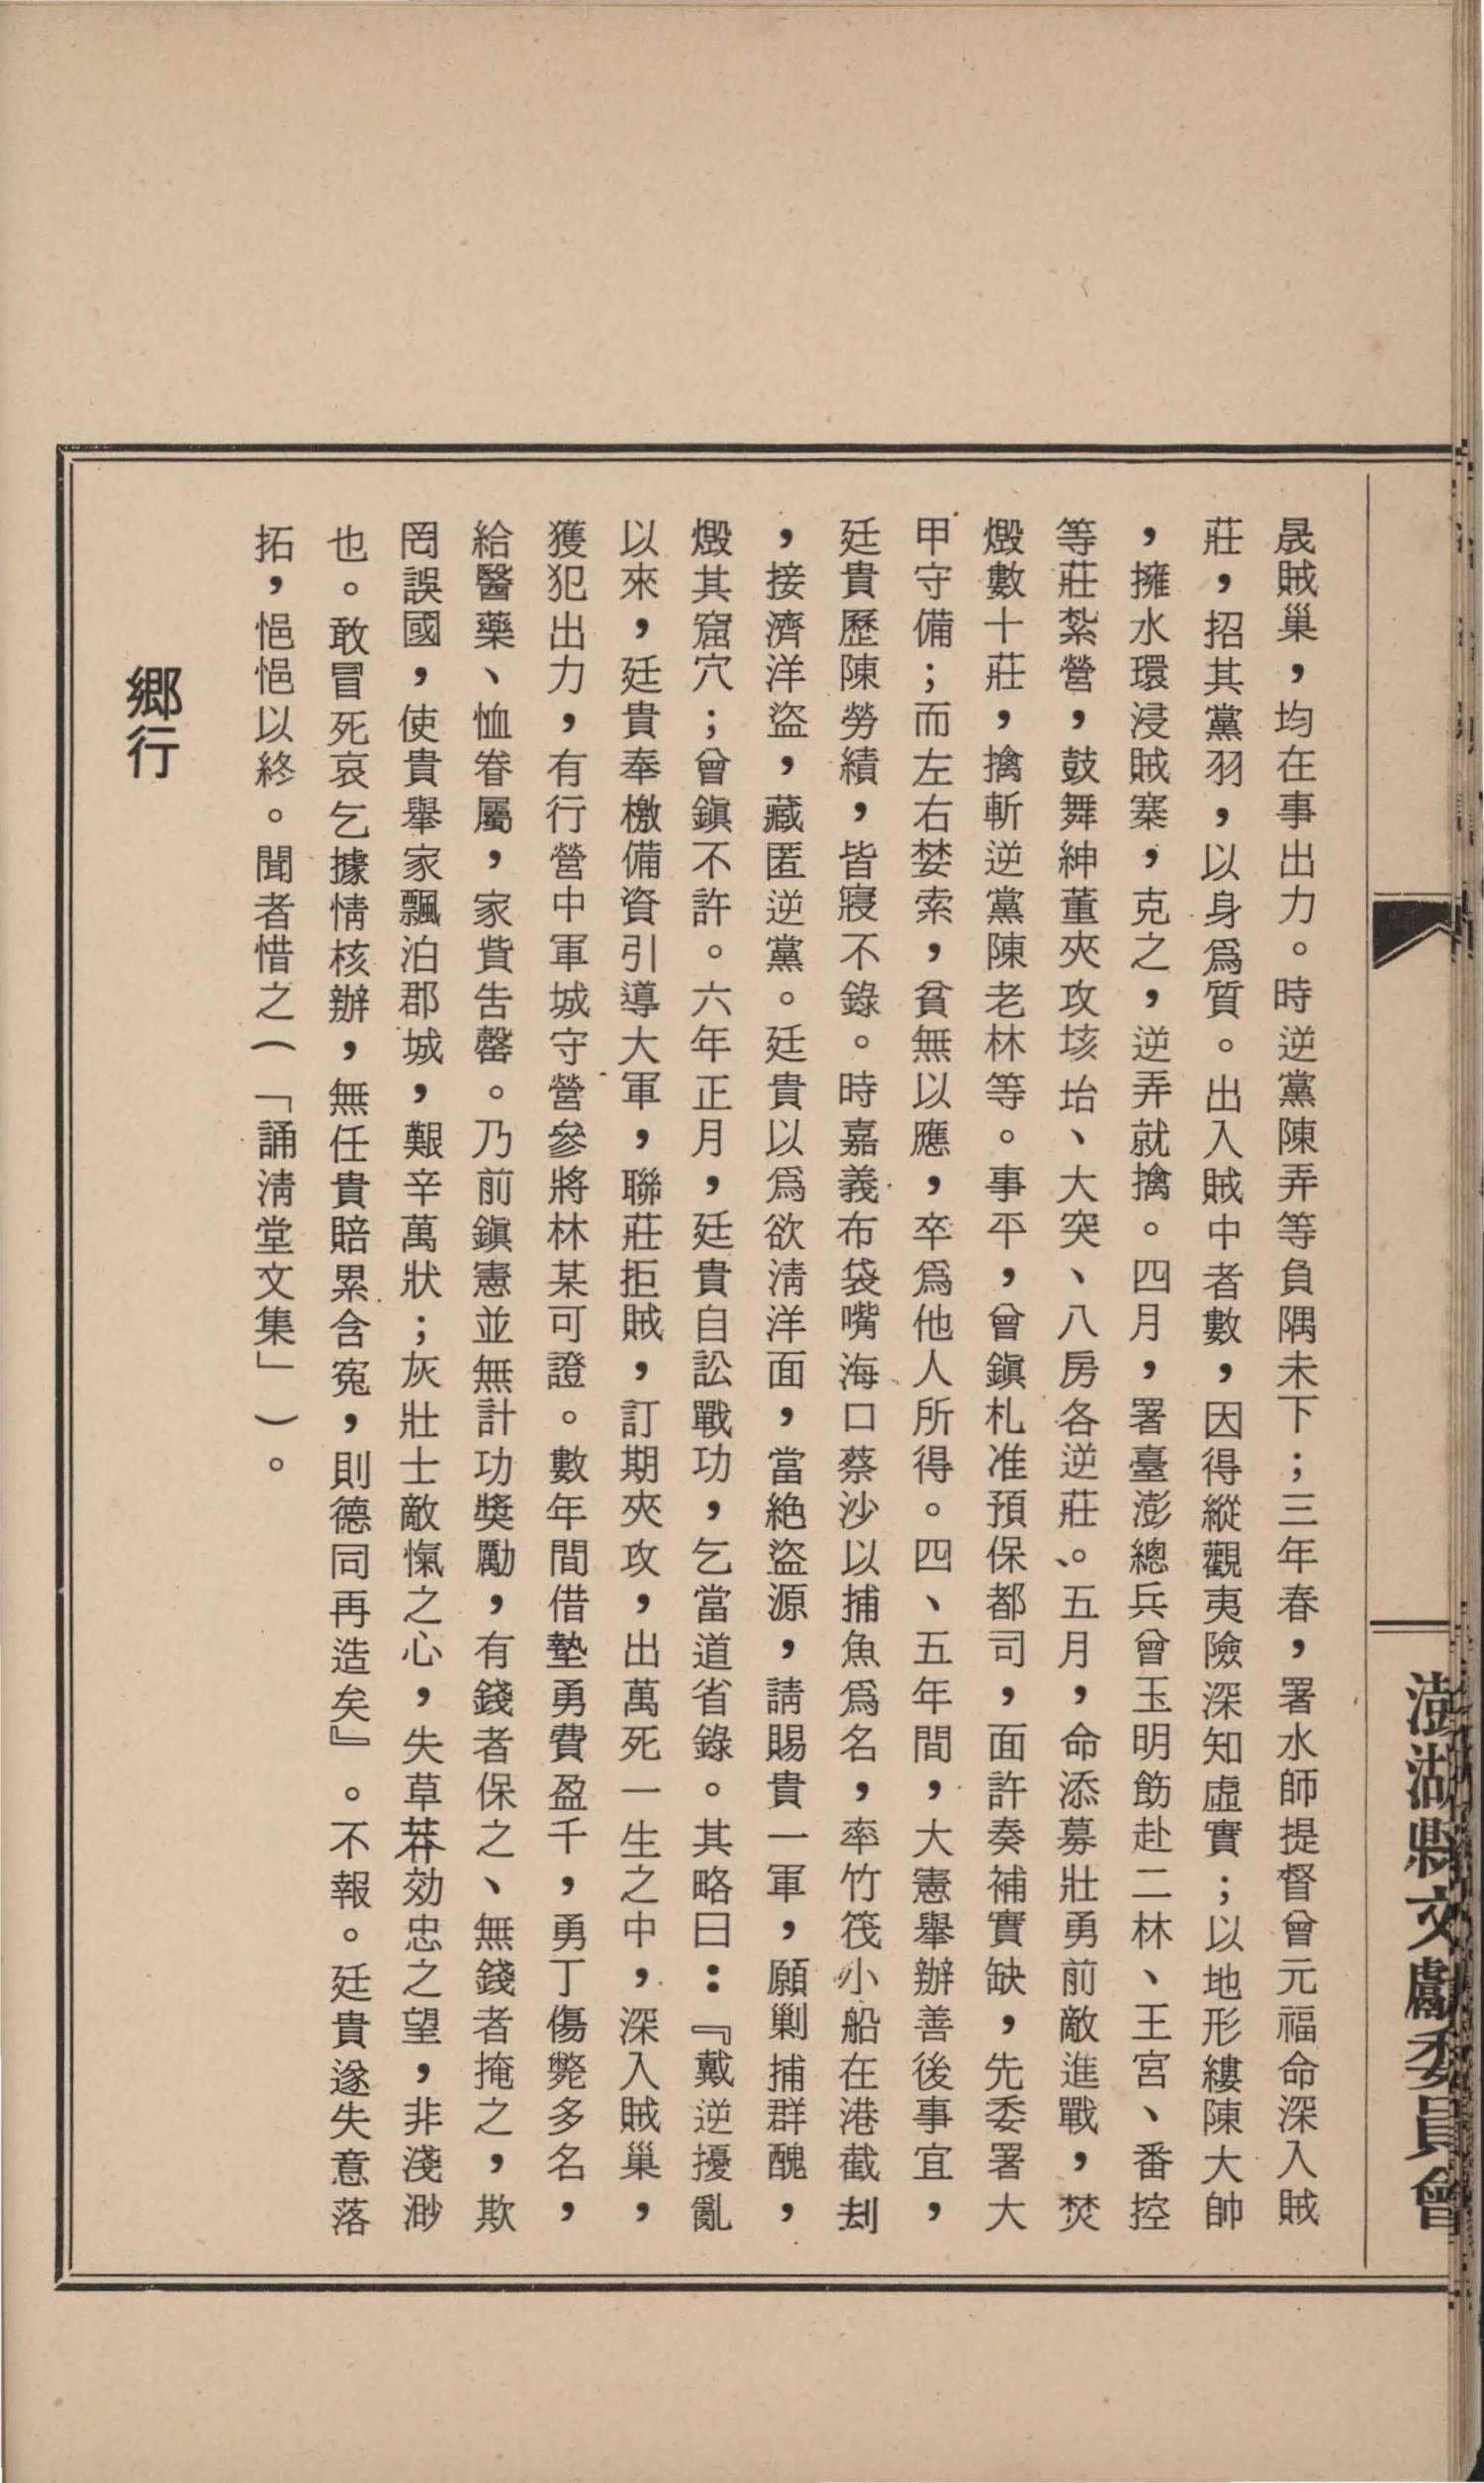 澎湖縣文獻委員會
晟賊巢，均在事出力。時逆黨陳弄等負隅未下；三年春，署水師提督曾元福命深入賊
莊，招其黨羽，以身爲質。出入賊中者數，因得縱觀夷險深知虛實；以地形縷陳大帥
，擁水環浸賊寨，克之，逆弄就擒。四月，署臺澎總兵曾玉明飭赴二林、王宮、番控
等莊紮營，鼓舞紳董夾攻垓坮、大突、八房各逆莊、。五月，命添募壯勇前敵進戰，焚
燬數十莊，擒斬逆黨陳老林等。事平，曾鎭札准預保都司，面許奏補實缺，先委署大
甲守備；而左右婪索，貧無以應，卒爲他人所得。四、五年間，大憲舉辦善後事宜，
廷貴歷陳勞績，皆寢不錄。時嘉義布袋嘴海口蔡沙以捕魚爲名，率竹筏小船在港截刦
，接濟洋盜，藏匿逆黨。廷貴以爲欲淸洋面，當絕盜源，請賜貴一軍，願剿捕群醜，
燬其窟穴；曾鎭不許。六年正月，廷貴自訟戰功，乞當道省錄。其略曰：『戴逆擾亂
以來，廷貴奉檄備資引導大軍，聯莊拒賊，訂期夾攻，出萬死一生之中，深入賊巢，
獲犯出力，有行營中軍城守營參將林某可證。數年間借墊勇費盈千，勇丁傷斃多名，
給醫藥、恤眷屬，家貲吿罄。乃前鎭憲並無計功獎勵，有錢者保之、無錢者掩之，欺
罔誤國，使貴舉家飄泊郡城，艱辛萬狀；灰壯士敵愾之心，失草莽効忠之望，非淺渺
也。敢冒死哀乞據情核辦，無任貴賠累含寃，則德同再造矣』。不報。廷貴遂失意落
拓，悒悒以終。聞者惜之（「誦淸堂文集」）。
鄉行